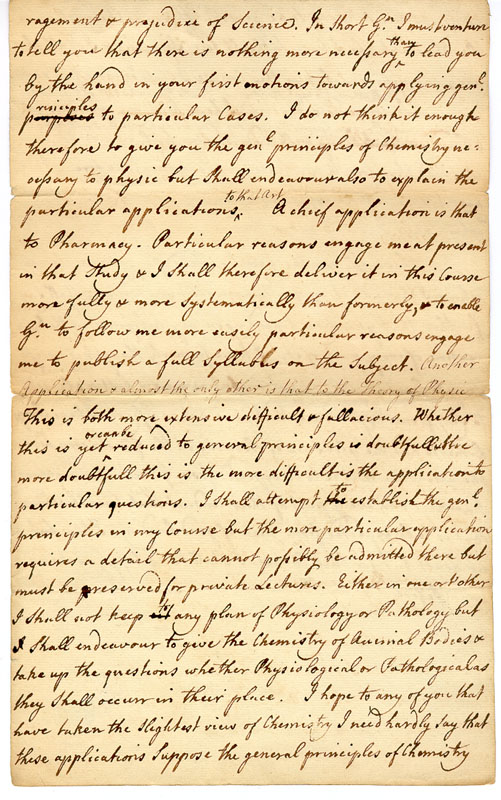 ragement & prejudice of Science. In Short Gn. I must venture
than
to tell you that there is nothing more necessary to lead you
by the hand in your first motions towards applying genl.
rinciples
to particular Cases. I do not think it enough
therefore to give you the genl principles of Chemistry ne-
cessary to physic but Shall endeavour also to explain the
to that Art
particular applications. A chief application is that
to Pharmacy. Particular reasons engage me at present
in that Study & I Shall therefore deliver it in this Course
more fully & more Systematically than formerly, & to enable
Gn. to follow me more easily particular reasons engage
me to publish a full Syllabus on the Subject. Another
Application & almost the only other is that to the Theory of Physic
This is both more extensive difficult & fallacious. Whether
or can be
this is yet reduced to general principles is doubtfull & the
more doubtfull this is the more difficult is the application to
to
particular questions. I shall attempt the establish the genl.
principles in my Course but the more particular application
requires a detail that cannot possibly be admitted there but
must be preserved for private Lectures. Either in one or other
to
I shall not keep any plan of Physiology or Pathology but
I Shall endeavour to give the Chemistry of Animal Bodies &
take up the questions whether Physiological or Pathological as
they Shall occurr in their place. I hope to any of you that
have taken the slightest view of Chemistry I need hardly say that
these applications Suppose the general principles of Chemistry